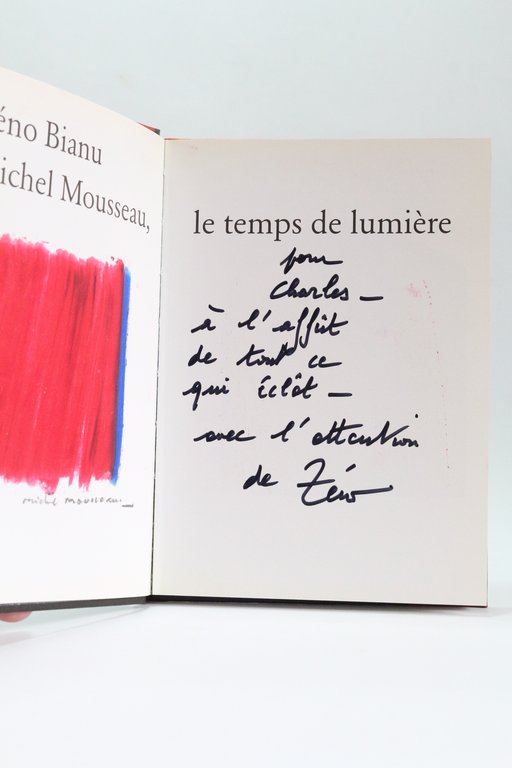 éno Bianu
ichel Mousseau,
michel mousseau.
le temps de lumière
pour
Charles –
à l'affût
de tout ce
qui éclôt –
avec l'attention
de Zéno